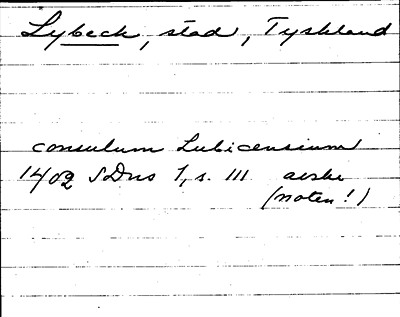 Lybeck, stad, Tyskland
consulum Lubicensium
1402 SDns 1, s. 111 avskr
(noten!)